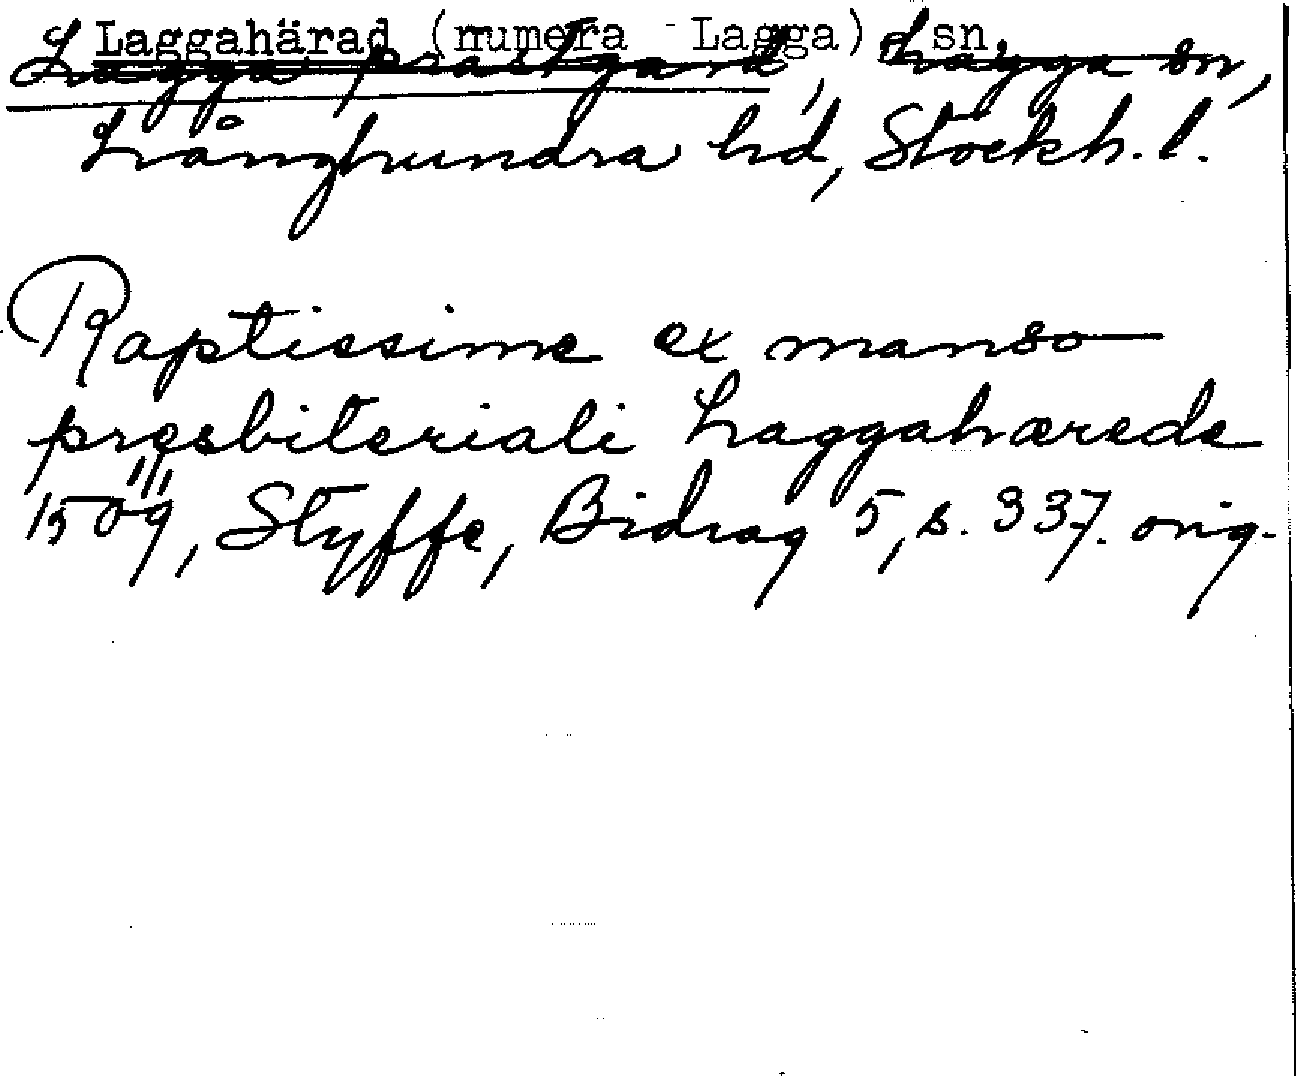 Laggahärad (numera Lagga) sn,
Lagga prästgård, Lagga sn,
Långhundra hd, Stockh. l.
Raptissime ex manso
presbiteriali Laggahærede
1509, Styffe, Bidrag 5, s. 337. orig.